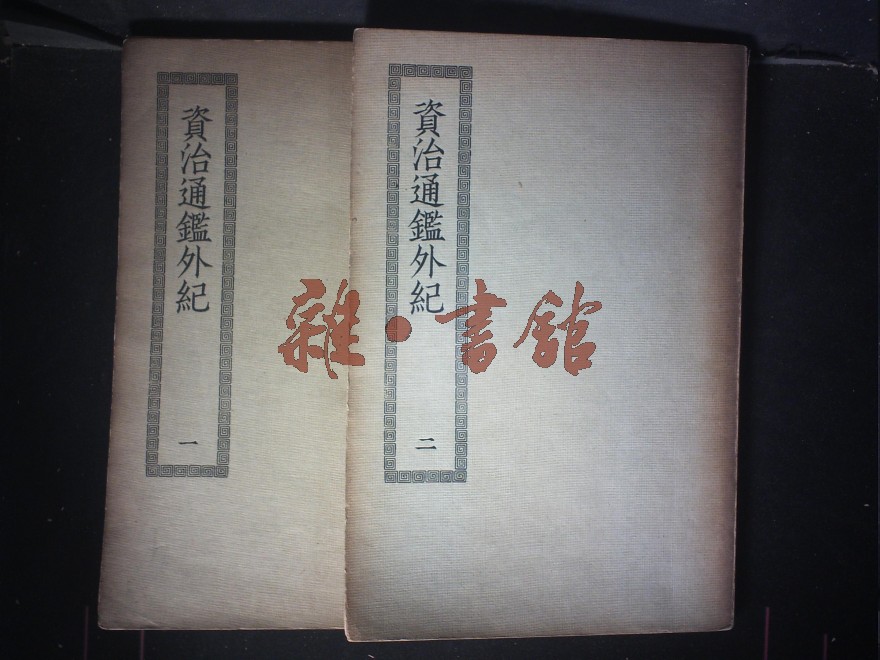 資治通鑑外紀
一
資治通鑑外紀
二
雜·書館